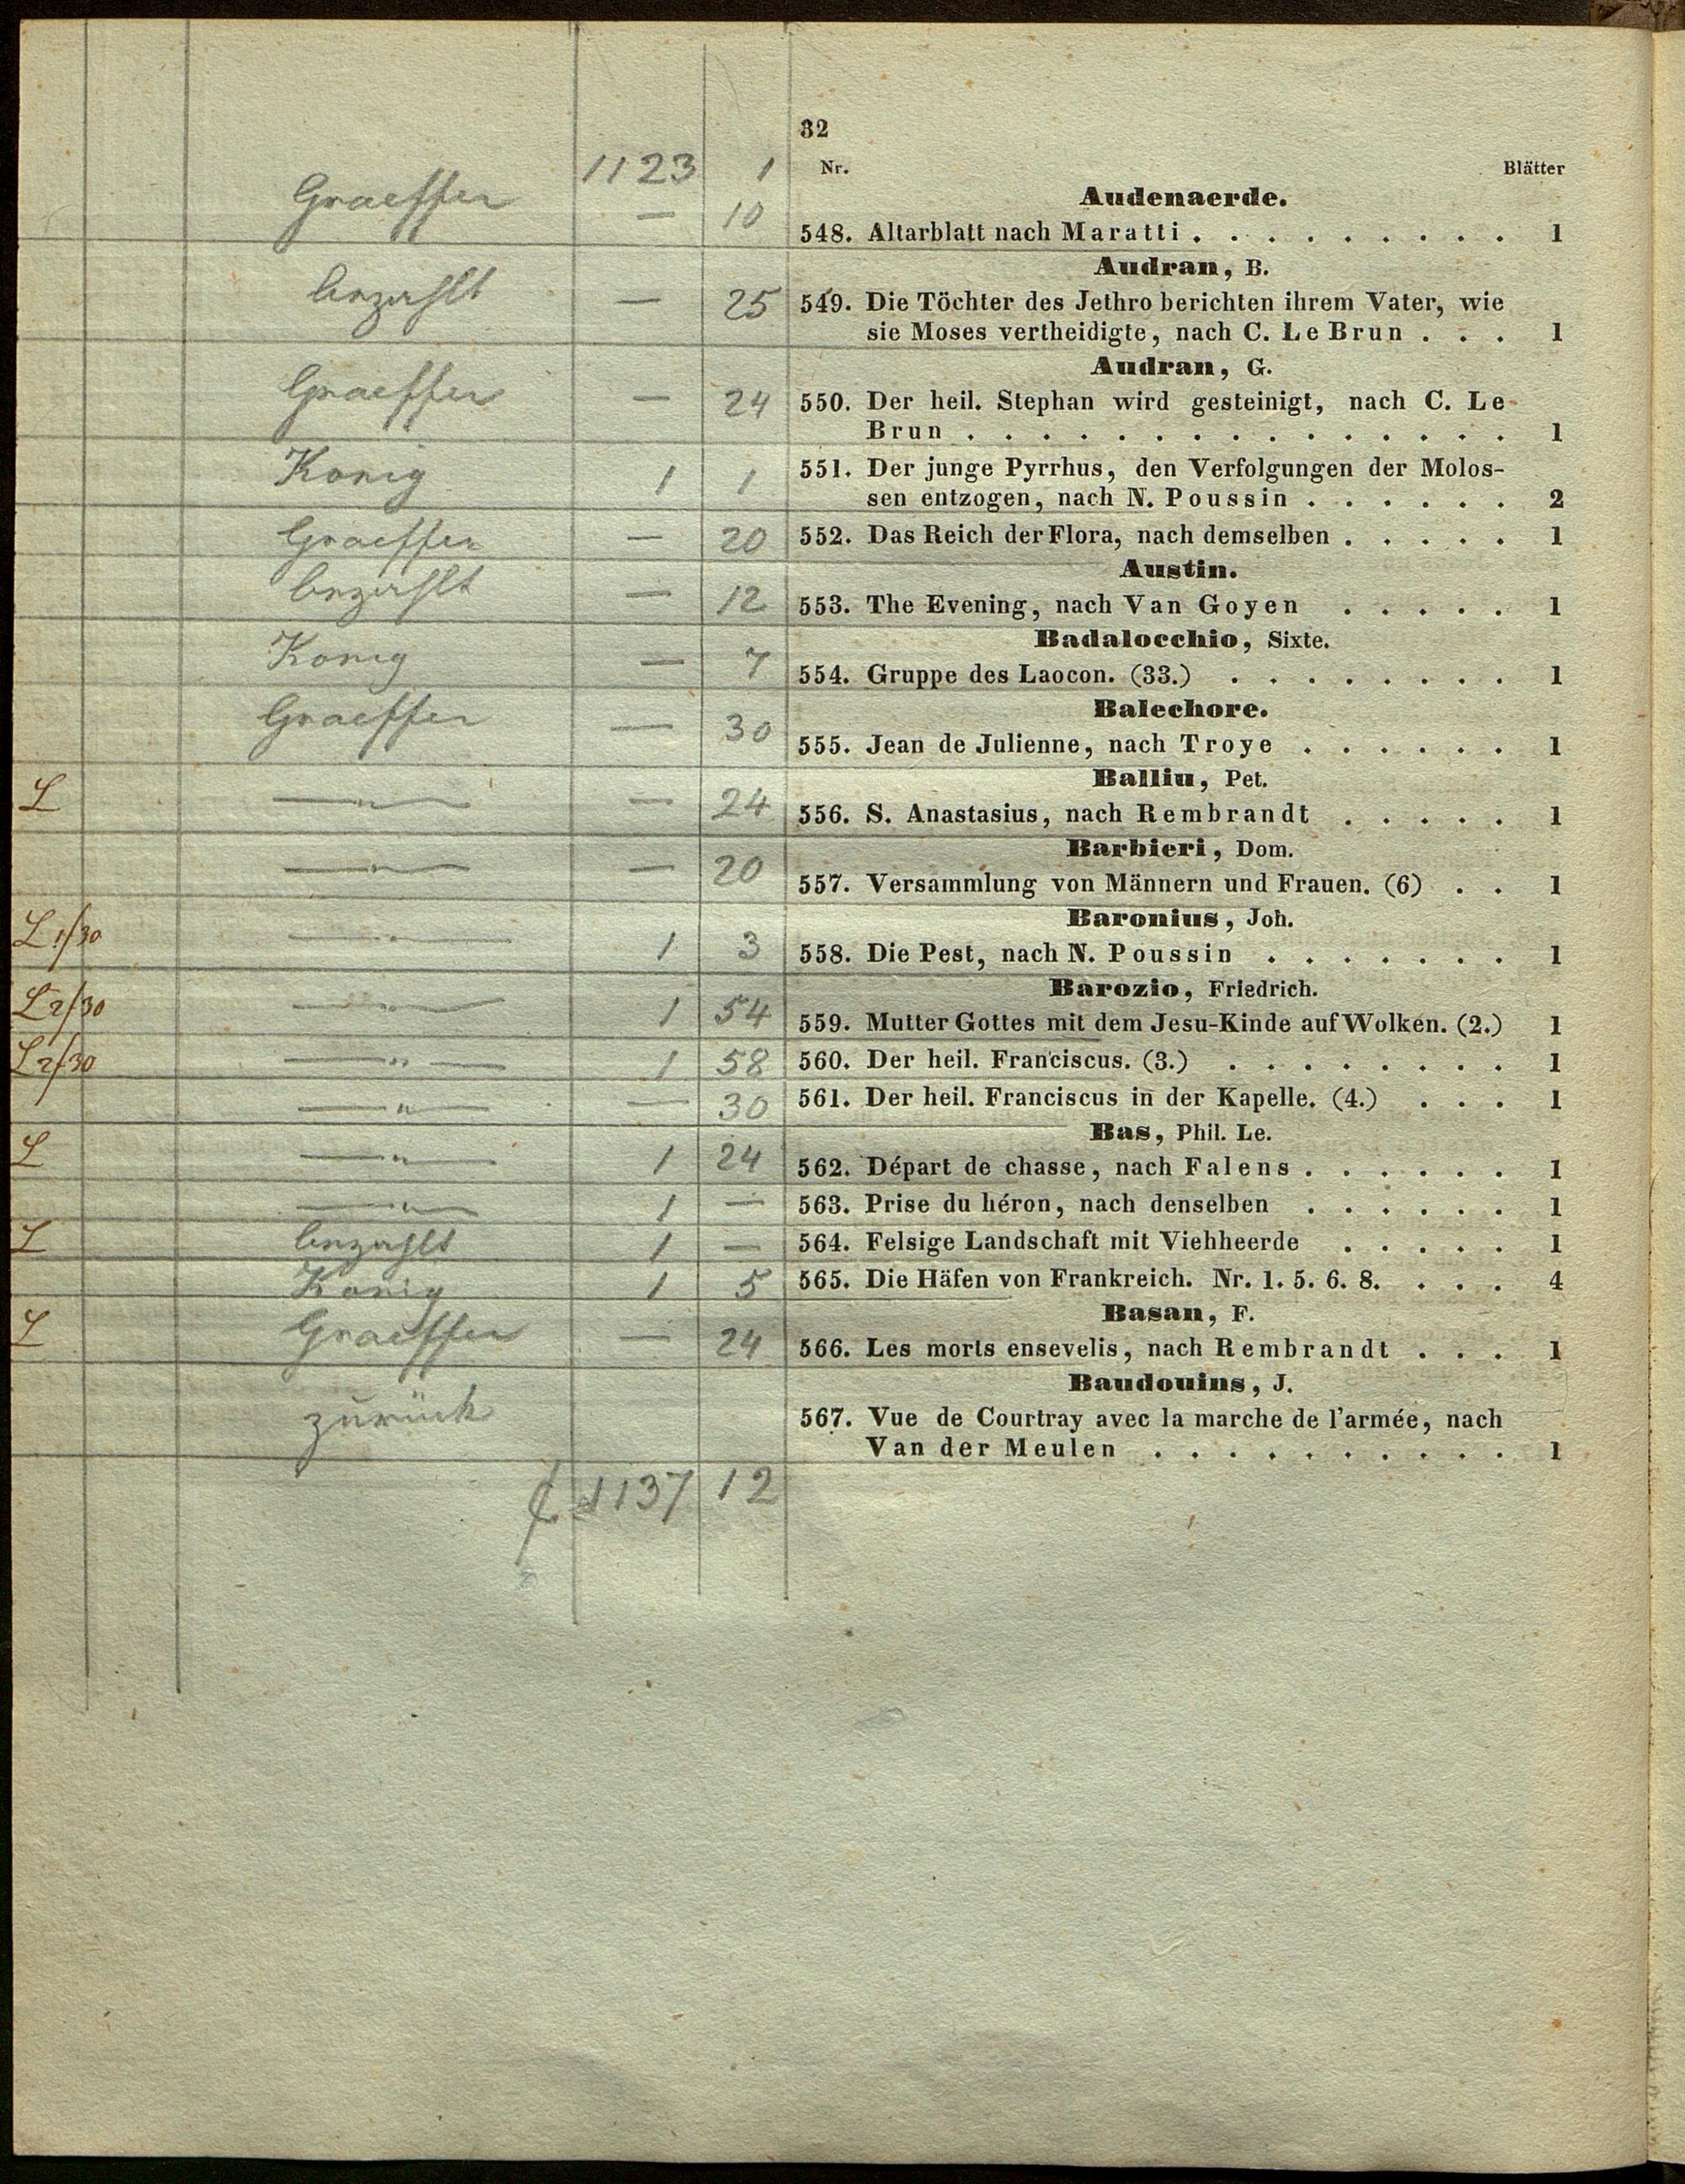 32
1123 1
Nr. Blätter
Audenaerde.
Graeffer — 10 548. Altarblatt nach Maratti . . . . . . . . . 1
Audran, B.
bezahlt — 25 549. Die Töchter des Jethro berichten ihrem Vater, wie
sie Moses vertheidigte, nach C. Le Brun . . . 1
Audran, G.
Graeffer — 24 550. Der heil. Stephan wird gesteinigt, nach C. Le
Brun . . . . . . . . . . . . . . . 1
König 1 1 551. Der junge Pyrrhus, den Verfolgungen der Molos-
sen entzogen, nach N. Poussin . . . . . . 2
Graeffer — 20 552. Das Reich der Flora, nach demselben . . . . . 1
Austin.
bezahlt — 12 553. The Evening, nach Van Goyen . . . . . 1
Badalocchio, Sixte.
König — 7 554. Gruppe des Laocon. (33.) . . . . . . . . 1
Balechore.
Graeffer — 30 555. Jean de Julienne, nach Troye . . . . . . 1
Balliu, Pet.
L —"— — 24 556. S. Anastasius, nach Rembrandt . . . . . 1
Barbieri, Dom.
—"— — 20 557. Versammlung von Männern und Frauen. (6) . . 1
Baronius, Joh.
L 1/30 —"— 1 3 558. Die Pest, nach N. Poussin . . . . . . . 1
Barozio, Friedrich.
L 2/30 —"— 1 54 559. Mutter Gottes mit dem Jesu-Kinde auf Wolken. (2.) 1
L 2/30 —"— 1 58 560. Der heil. Franciscus. (3.) . . . . . . . . 1
—"— — 30 561. Der heil. Franciscus in der Kapelle. (4.) . . . 1
Bas, Phil. Le.
L —"— 1 24 562. Départ de chasse, nach Falens . . . . . . 1
—"— 1 — 563. Prise du héron, nach denselben . . . . . . 1
L bezahlt 1 — 564. Felsige Landschaft mit Viehheerde . . . . . 1
König 1 5 565. Die Häfen von Frankreich. Nr. 1. 5. 6. 8. . . . 4
Basan, F.
L Graeffer — 24 566. Les morts ensevelis, nach Rembrandt . . . 1
Baudouins, J.
zurück 567. Vue de Courtray avec la marche de l'armée, nach
Van der Meulen . . . . . . . . . . 1
1137 12